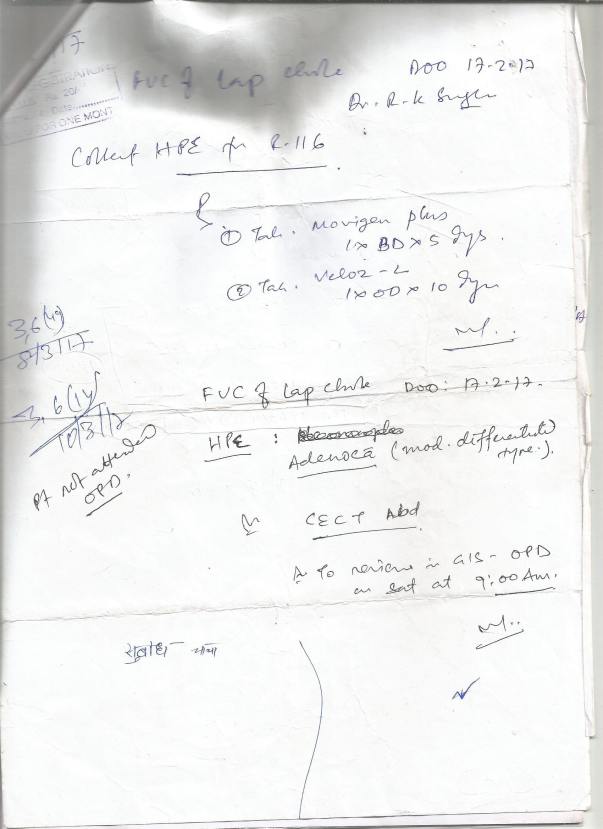 17
REGISTRATION
20/
Date
FOR ONE MONT
FUC of Lap chole DOO 17-2-17
Dr. R-K Singh
Collect HPE fr R-116
① Tab. Movigen plus
1x BD x 5 dys.
② Tab. Veloz-L
1x OD x 10 dys
3,6(14)
8/3/17
FUC of Lap chole DOO: 17.2.17.
3,6(14)
10/3/17
HPE :
Adenoca (mod. differentiated
type.).
Pt not attended
OPD.
CECT Abd
To review in GIS-OPD
on sat at 9:00 Am.